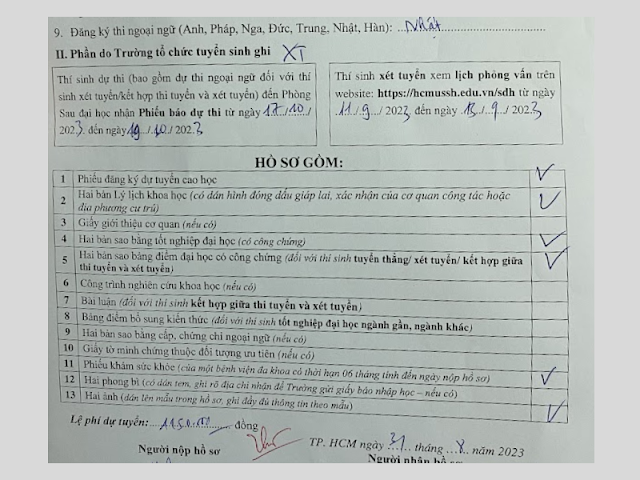 9. Đăng ký thi ngoại ngữ (Anh, Pháp, Nga, Đức, Trung, Nhật, Hàn): Nhật
II. Phần do Trường tổ chức tuyển sinh ghi XT
Thí sinh dự thi (bao gồm dự thi ngoại ngữ đối với thí
sinh xét tuyển/kết hợp thi tuyển và xét tuyển) đến Phòng
Sau đại học nhận Phiếu báo dự thi từ ngày 17/10/
2023 đến ngày 19/10/2023
Thí sinh xét tuyển xem lịch phỏng vấn trên
website: https://hcmussh.edu.vn/sdh từ ngày
11/9/2023 đến ngày 13/9/2023
HỒ SƠ GỒM:
1 Phiếu đăng ký dự tuyển cao học
2 Hai bản Lý lịch khoa học (có dán hình đóng dấu giáp lai, xác nhận của cơ quan công tác hoặc
địa phương cư trú)
3 Giấy giới thiệu cơ quan (nếu có)
4 Hai bản sao bằng tốt nghiệp đại học (có công chứng)
5 Hai bản sao bảng điểm đại học có công chứng (đối với thí sinh tuyển thẳng/ xét tuyển/ kết hợp giữa
thi tuyển và xét tuyển)
6 Công trình nghiên cứu khoa học (nếu có)
7 Bài luận (đối với thí sinh kết hợp giữa thi tuyển và xét tuyển)
8 Bảng điểm bổ sung kiến thức (đối với thí sinh tốt nghiệp đại học ngành gần, ngành khác)
9 Hai bản sao bằng cấp, chứng chỉ ngoại ngữ (nếu có)
10 Giấy tờ minh chứng thuộc đối tượng ưu tiên (nếu có)
11 Phiếu khám sức khỏe (của một bệnh viện đa khoa có thời hạn 06 tháng tính đến ngày nộp hồ sơ)
12 Hai phong bì (có dán tem, ghi rõ địa chỉ nhận để Trường gửi giấy báo nhập học – nếu có)
13 Hai ảnh (dán lên mẫu trong hồ sơ, ghi đầy đủ thông tin theo mẫu)
Lệ phí dự tuyển: đồng
TP. HCM ngày 31 tháng 8 năm 2023
Người nộp hồ sơ
Người nhận hồ sơ